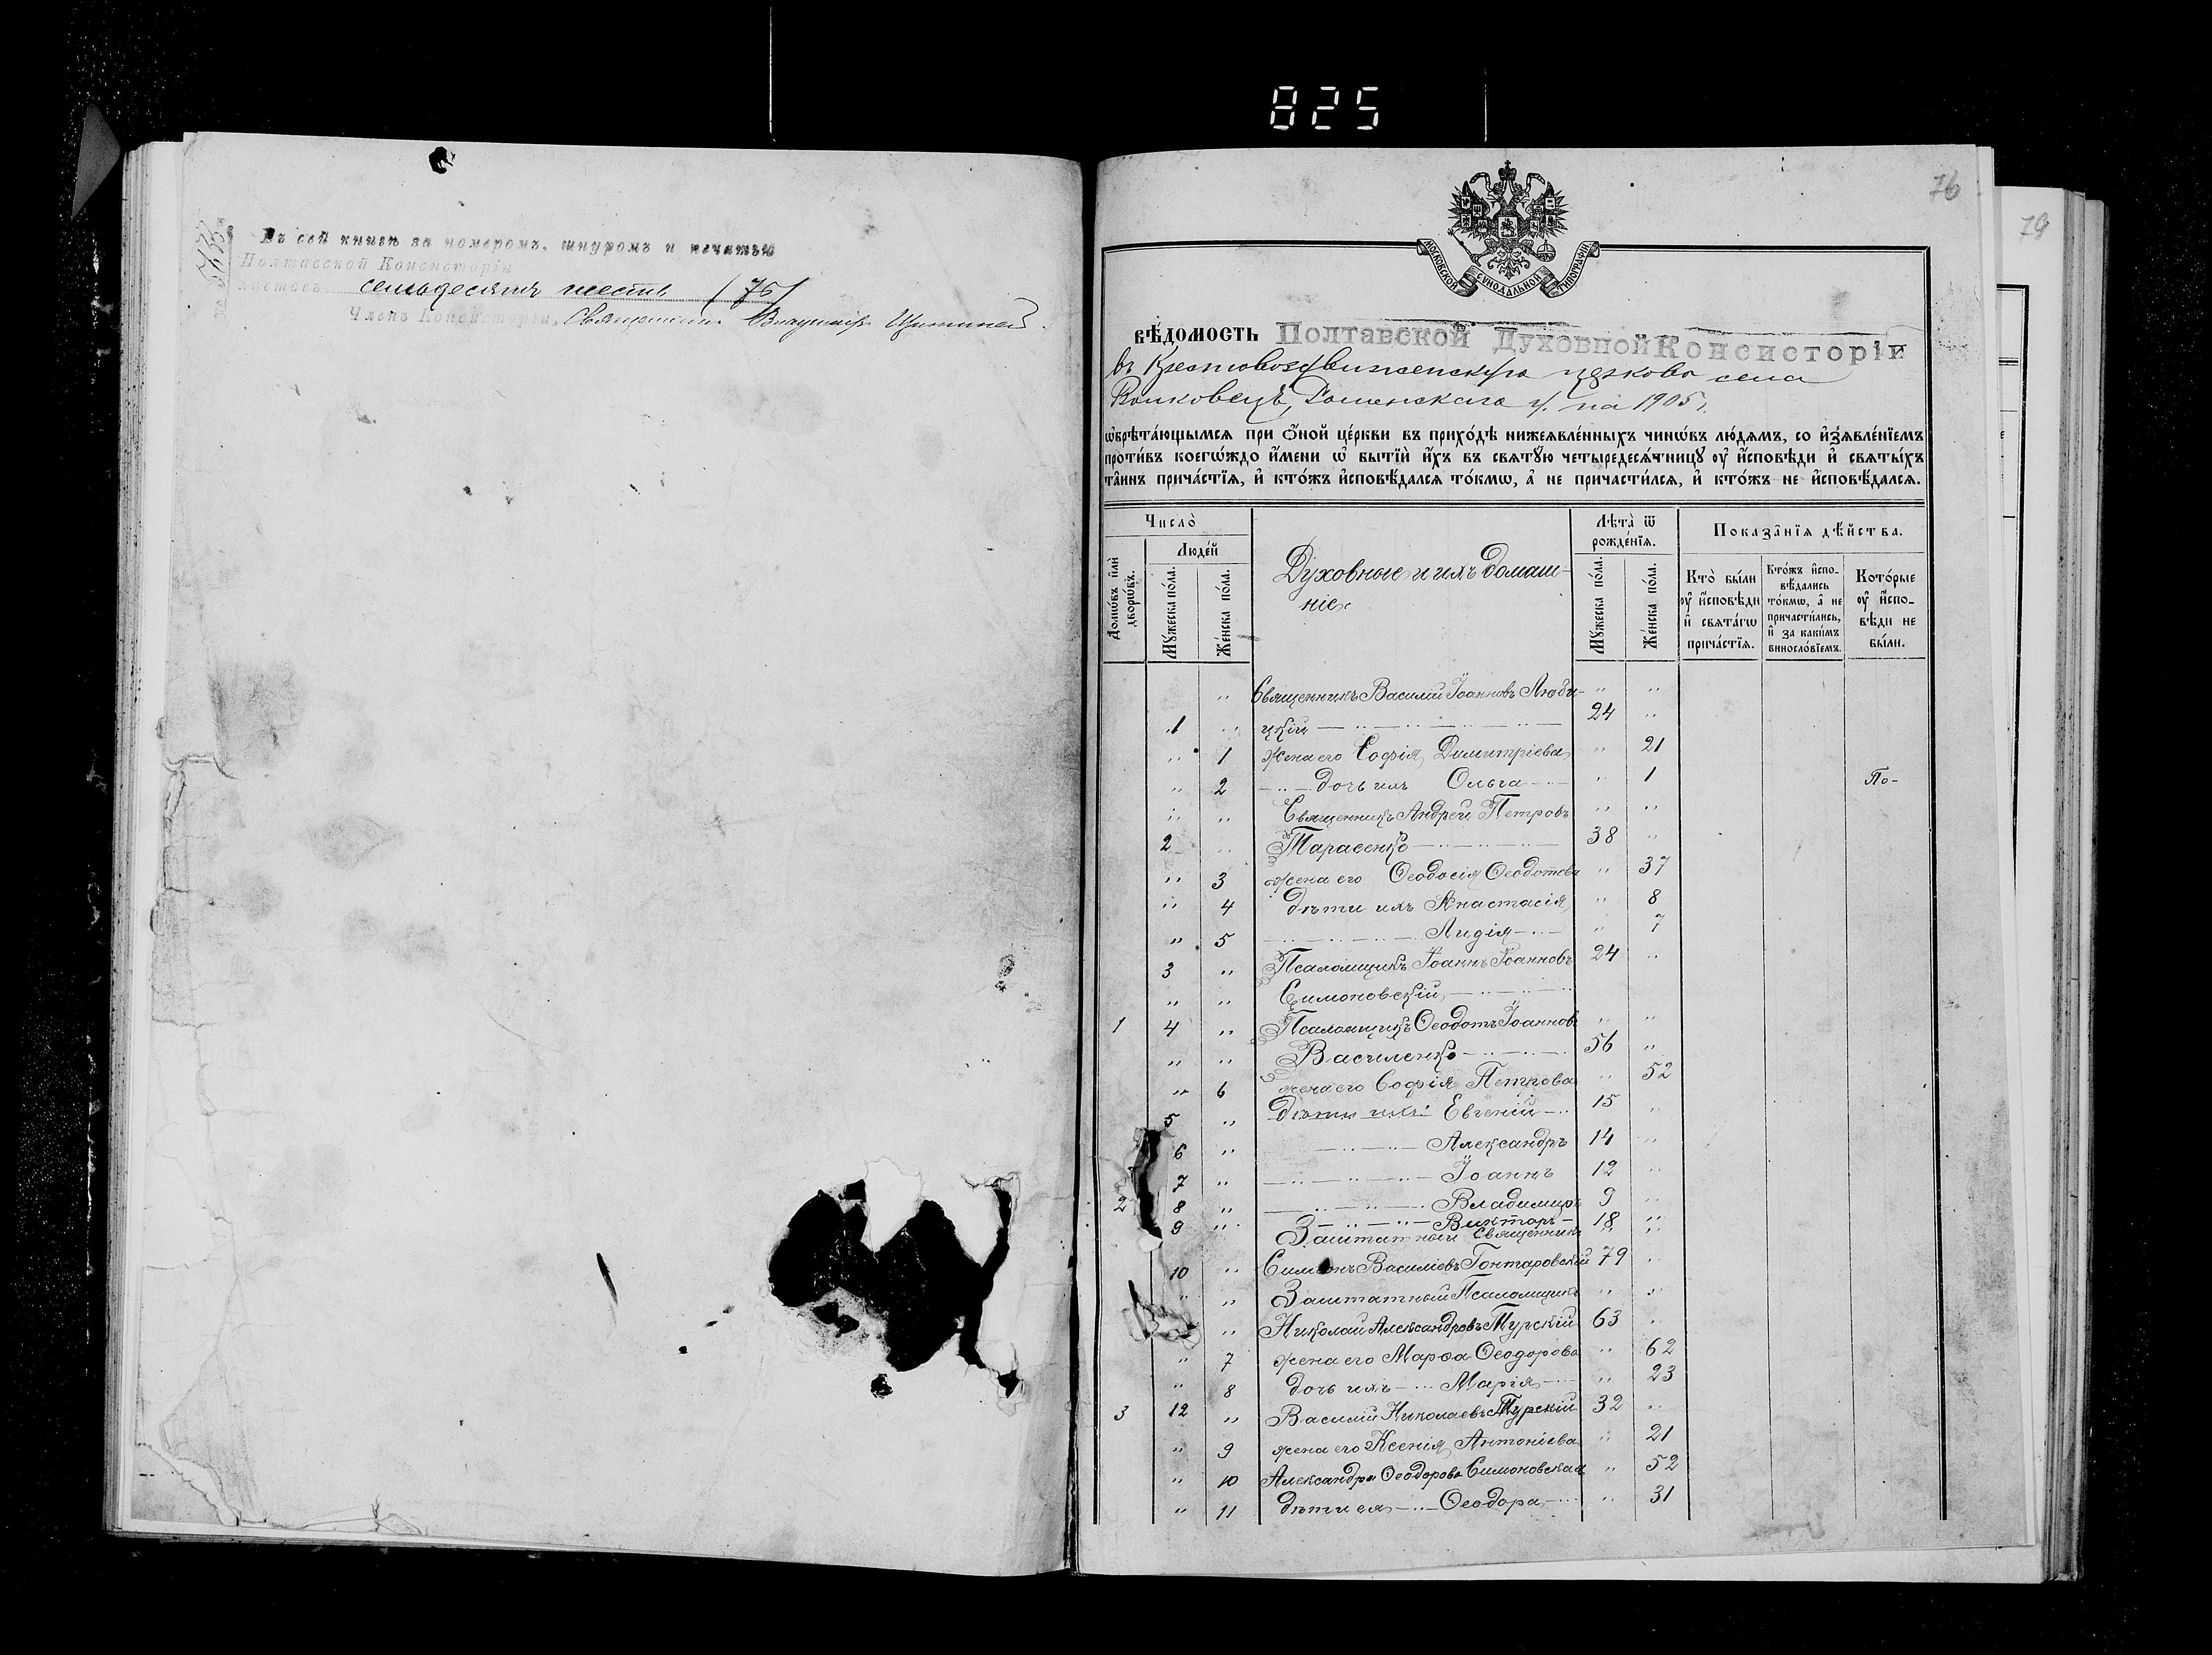 825
Въ сей книгѣ за номеромъ, шнуромъ и печатью
Полтавской Консисторіи
листовъ семьдесятъ шесть (76)
Членъ Консисторіи, Священникъ
76
79
МОСКОВСКОЙ СѴНОДАЛЬНОЙ ТИПОГРАФІИ
вѣ́домость Полтавской Духовной Консисторіи
въ Крестовоздвиженскую церковь села
Волковецъ, Роменскаго у. на 1905 г.
ѡ҆брѣта́ющымсѧ при Ѻ҆́ной це́ркви въ прихо́дѣ нижеѧвле́нныхъ чинѡ́въ лю́дѧмъ, со и҆з̾ѧвле́нїемъ
проти́въ коегѡ́ждо и҆́мени ѡ҆ бытїѝ и҆́хъ въ свѧту́ю четыредесѧ́тницу ᲂу҆ и҆́сповѣди и҆ свѧты́хъ
та̑инъ прича́стїѧ, и҆ кто́жъ и҆сповѣ́далсѧ то́кмѡ, а҆ не причасти́лсѧ, и҆ кто́жъ не и҆сповѣ́далсѧ.
Число̀
Домѡ́въ и҆лѝ дворѡ́въ.
Люде́й
Мꙋ́жеска по́ла.
Же́нска по́ла.
Духовные и ихъ домаш-
ніе
Лѣта̀ ѿ рожде́нїѧ.
Мꙋ́жеска по́ла.
Же́нска по́ла.
Показа̑нїѧ дѣ́йства.
Кто̀ бы́ли ᲂу҆ и҆́сповѣди и҆ свѧта́гѡ прича́стїѧ.
Кто́жъ и҆спо-вѣ́дались то́кмѡ, а҆ не причасти́лись, и҆ за каки́мъ винослѡ́вїемъ.
Кото́рые ᲂу҆ и҆́спо-вѣди не бы́ли.
" Священникъ Василій Іоанновъ Люби- " "
1 " цкій 24 "
" 1 Жена его Софія Димитріева " 21
" 2 дочь ихъ Ольга " 1 По-
" " Священникъ Андрей Петровъ " "
2 " Тарасенко 38 "
" 3 жена его Ѳеодосія Ѳеодотова " 37
" 4 дѣти ихъ Анастасія " 8
" 5 Лидія " 7
3 " Псаломщикъ Іоаннъ Іоанновъ 24 "
" " Симоновскій
1 4 " Псаломщикъ Ѳеодотъ Іоанновъ " "
" " Василенко 56 "
" 6 жена его Софія Петрова " 52
5 " дѣти ихъ: Евгеній 15 "
6 " Александръ 14 "
7 " Іоаннъ 12 "
2 8 " Владимиръ 9 "
9 " Викторъ 18 "
Заштатный Священникъ " "
10 " Симеонъ Василіевъ Гонтаровскій 79 "
" " Заштатный Псаломщикъ " "
" Николай Александровъ Турскій 63 "
" 7 жена его Марѳа Ѳеодорова " 62
" 8 дочь ихъ Марія " 23
3 12 " Василій Николаевъ Турскій 32 "
" 9 жена его Ксенія Антоніева " 21
" 10 Александра Ѳеодорова Симоновская " 52
" 11 дѣти ея Ѳеодора " 31